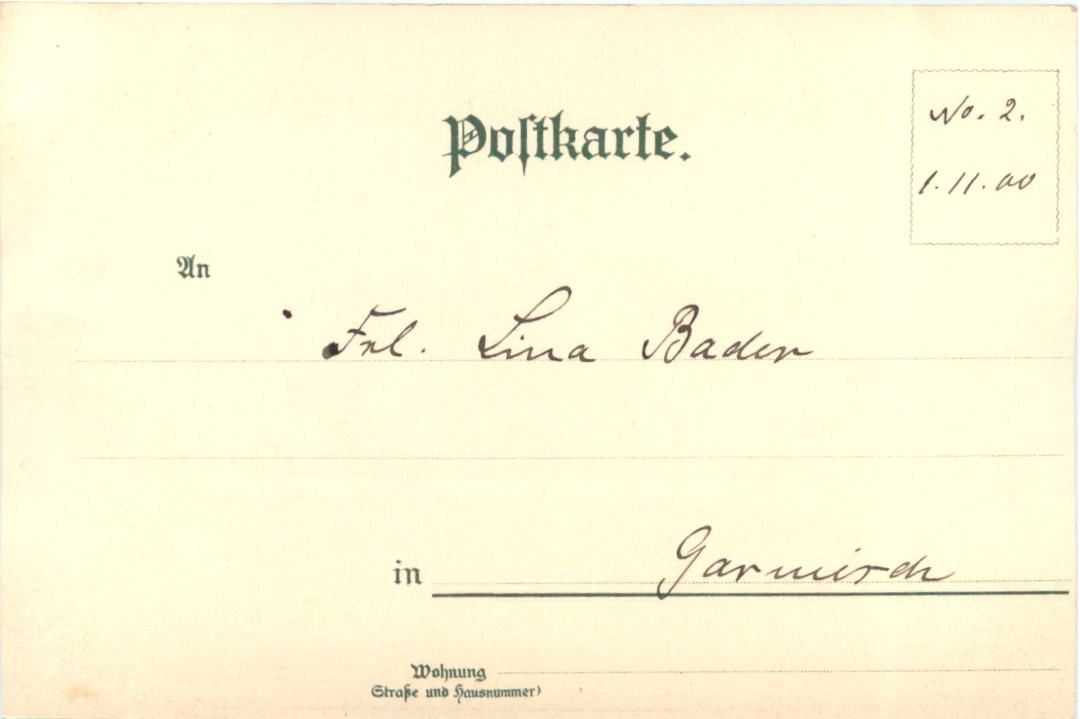 Postkarte.
No. 2.
1.11.00
An
Frl. Lina Bader
in Garmisch
Wohnung
(Straße und Hausnummer)